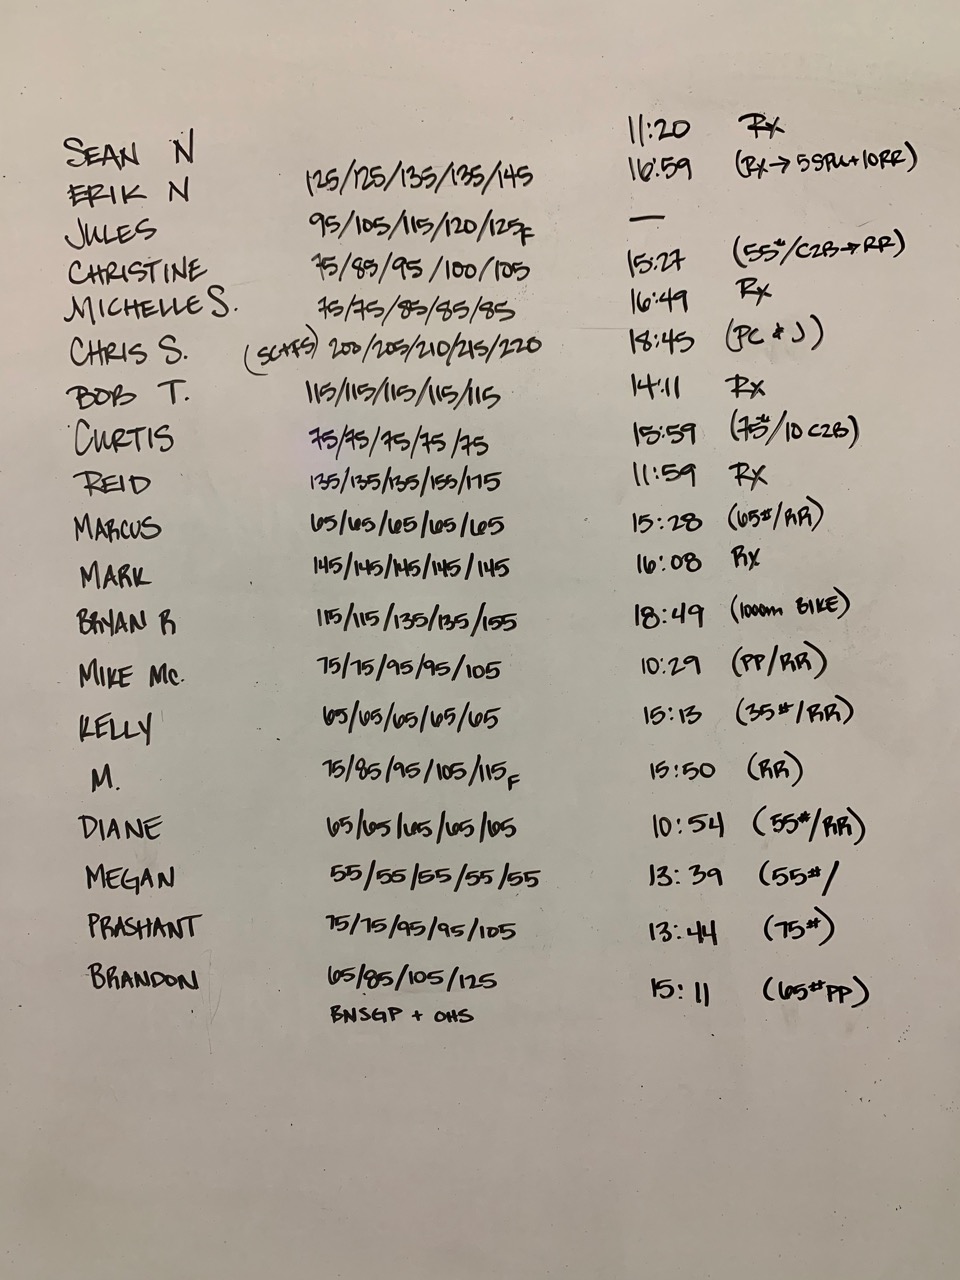 SEAN N 11:20 Rx
ERIK N 125/125/135/135/145 16:59 (Rx→5SPU+10RR)
JULES 95/105/115/120/125F —
CHRISTINE 75/85/95/100/105 15:27 (55#/C2B→RR)
MICHELLE S. 75/75/85/85/85 16:49 Rx
CHRIS S. 200/205/210/215/220 18:45 (PC & J)
BOB T. 115/115/115/115/115 14:11 Rx
CURTIS 75/75/75/75/75 15:59 (75#/10 C2B)
REID 135/135/135/155/175 11:59 Rx
MARCUS 65/65/65/65/65 15:28 (65#/RR)
MARK 145/145/145/145/145 16:08 Rx
BRYAN R 115/115/135/135/155 18:49 (1000m BIKE)
MIKE Mc. 75/75/95/95/105 10:29 (PP/RR)
KELLY 65/65/65/65/65 15:13 (35#/RR)
M. 75/85/95/105/115F 15:50 (RR)
DIANE 65/65/65/65/65 10:54 (55#/RR)
MEGAN 55/55/55/55/55 13:39 (55#/
PRASHANT 75/75/95/95/105 13:44 (75#)
BRANDON 65/85/105/125 15:11 (65#PP)
BNSGP + OHS